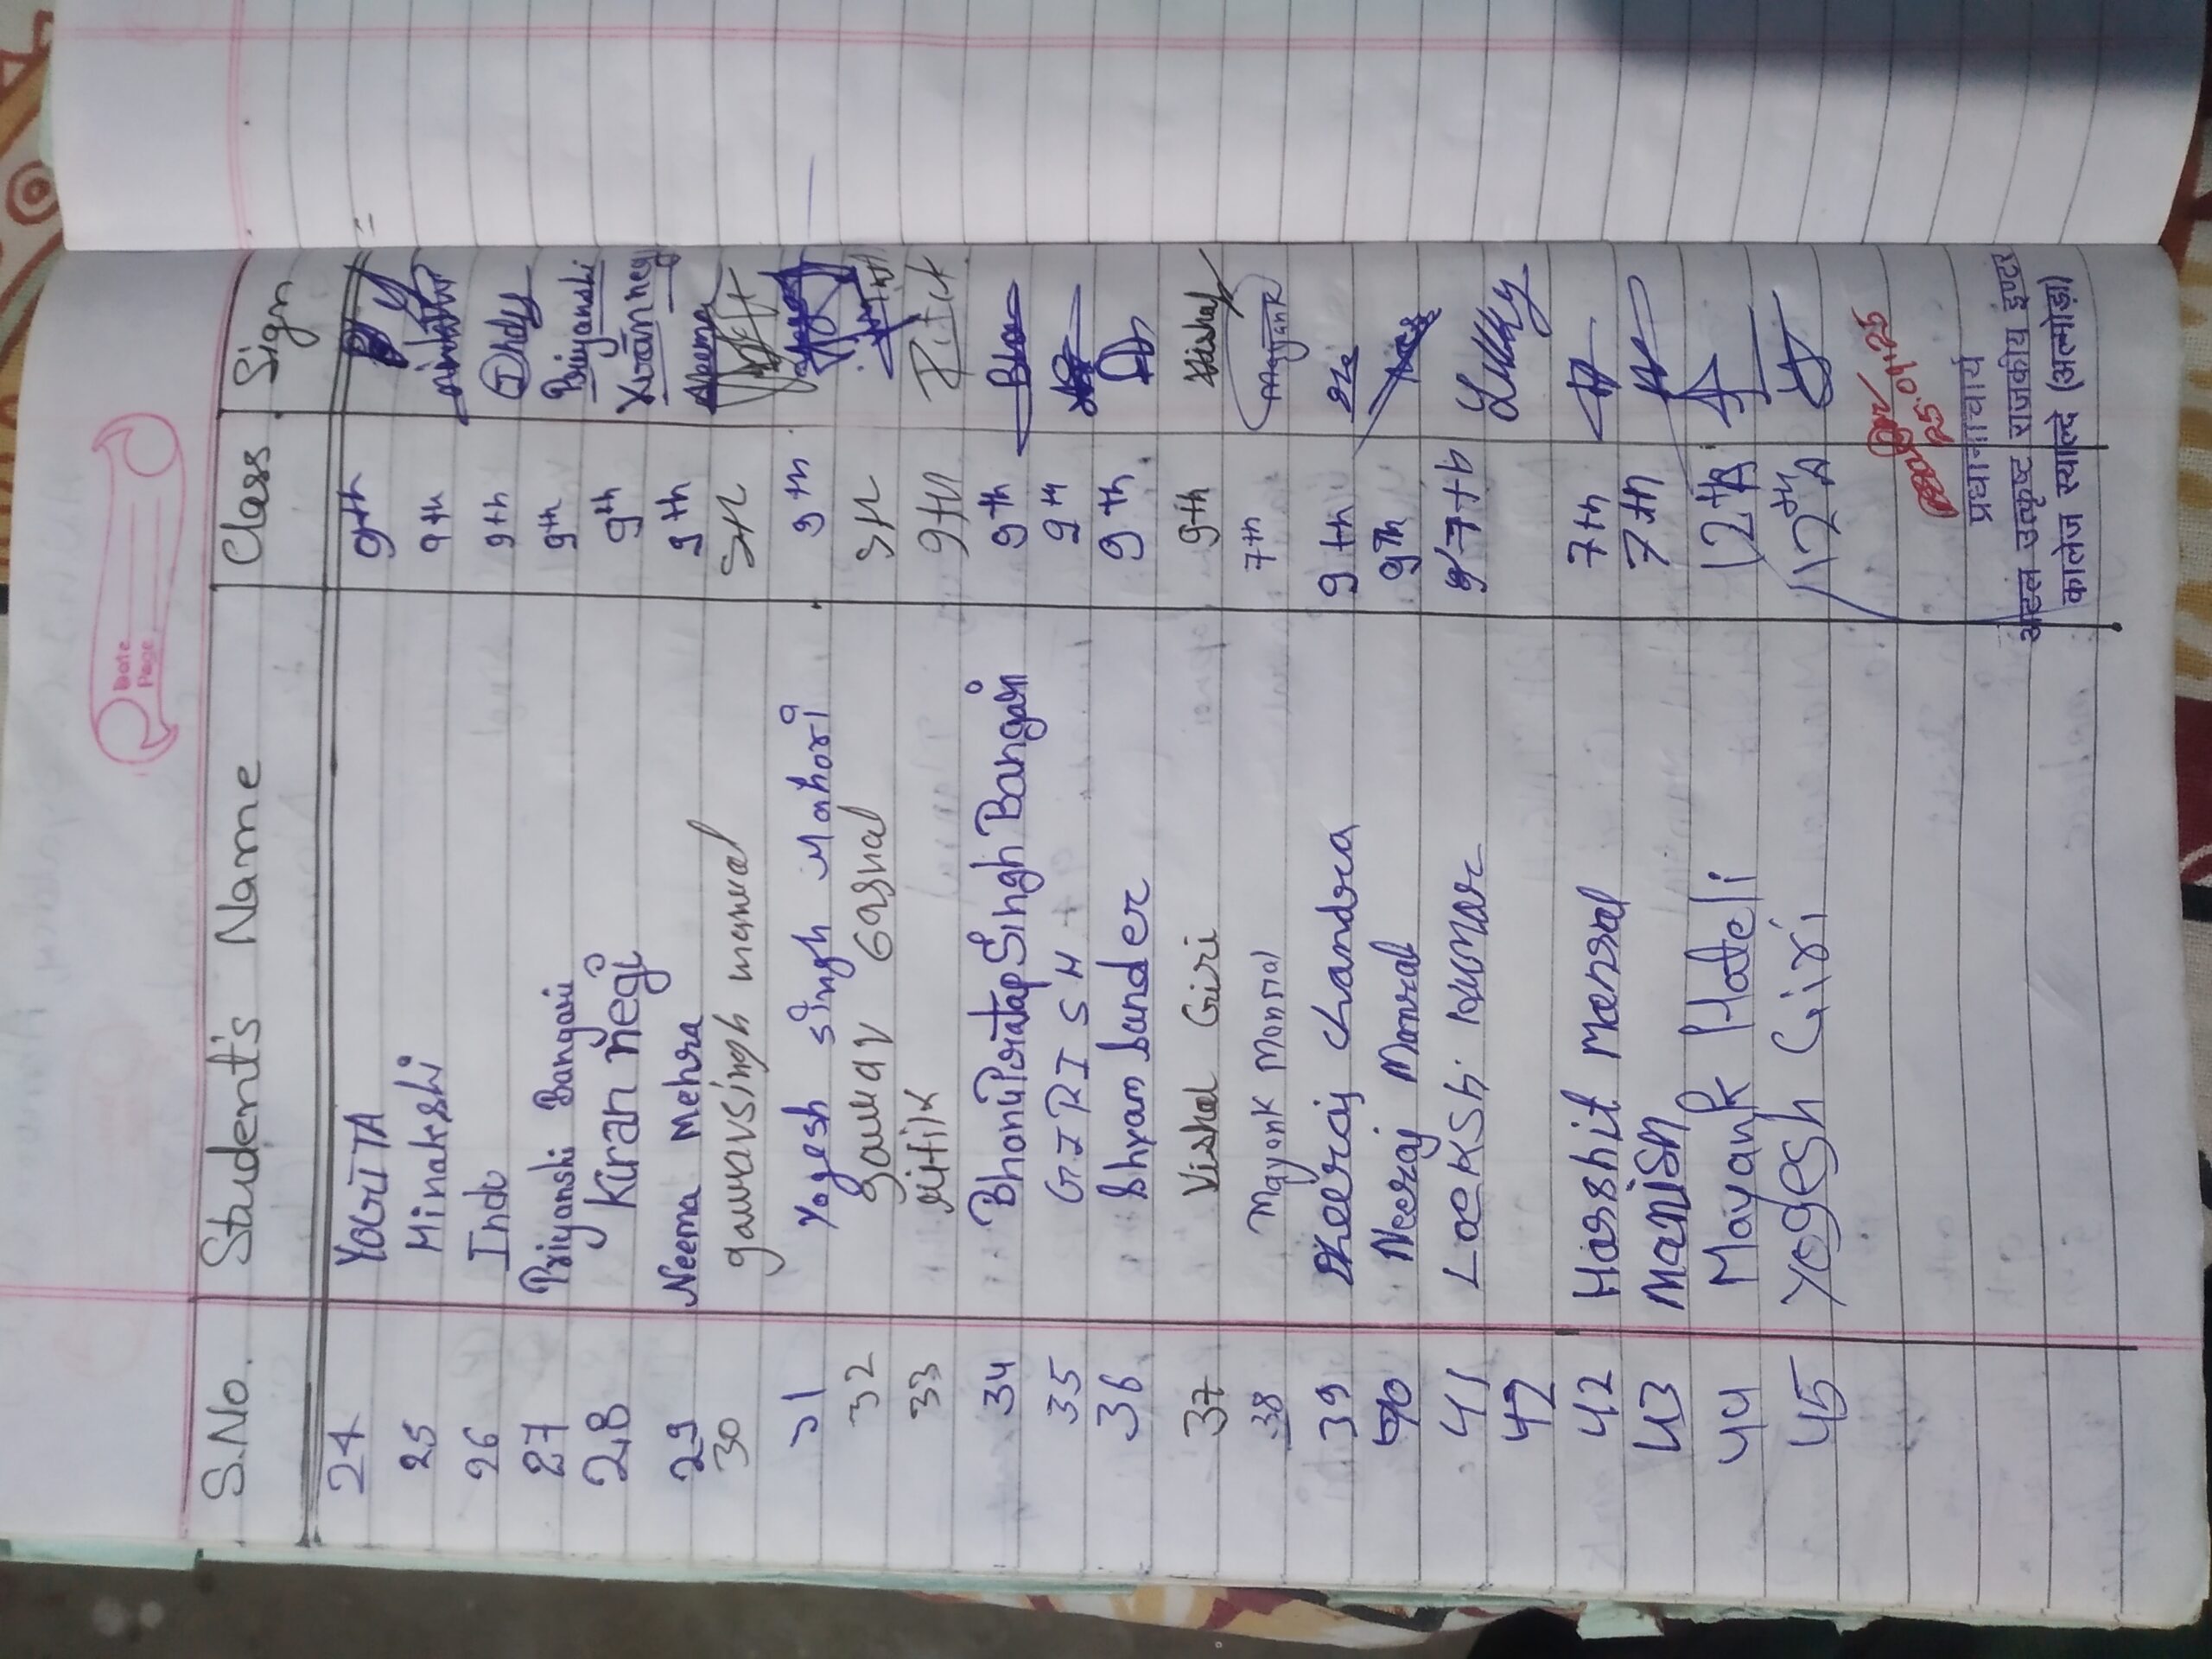 Date
Page
S.No. Student's Name Class Sign
24 9th
25 Minakshi 9th
26 Indu 9th
27 Priyanshi Bangari 9th Priyanshi
28 Kiran negi 9th Kiran negi
29 Neema Mehra 9th Neema
30 gauravsingh manral 9th
31 Yogesh singh Mahori 9th
32 gaurav 9th
33 ritik 9TH Ritik
34 Bhanu Pratap Singh Bangari 9th
35 GIRISH 9th
36 Shyam Sunder 9th
37 Vishal Giri 9th Vishal
38 Mayank Manral 7th Mayank
39 Dheeraj Chandra 9th
40 Neeraj Manral 9th
41 Kumar 7th Lucky
42
42 Harshit Manral 7th
43 Manish 7th
44 Mayank Hateli 12th A
45 Yogesh Giri 12th A
25.01.25
प्रधानाचार्य
अटल उत्कृष्ट राजकीय इण्टर
कालेज स्याल्दे (अल्मोड़ा)